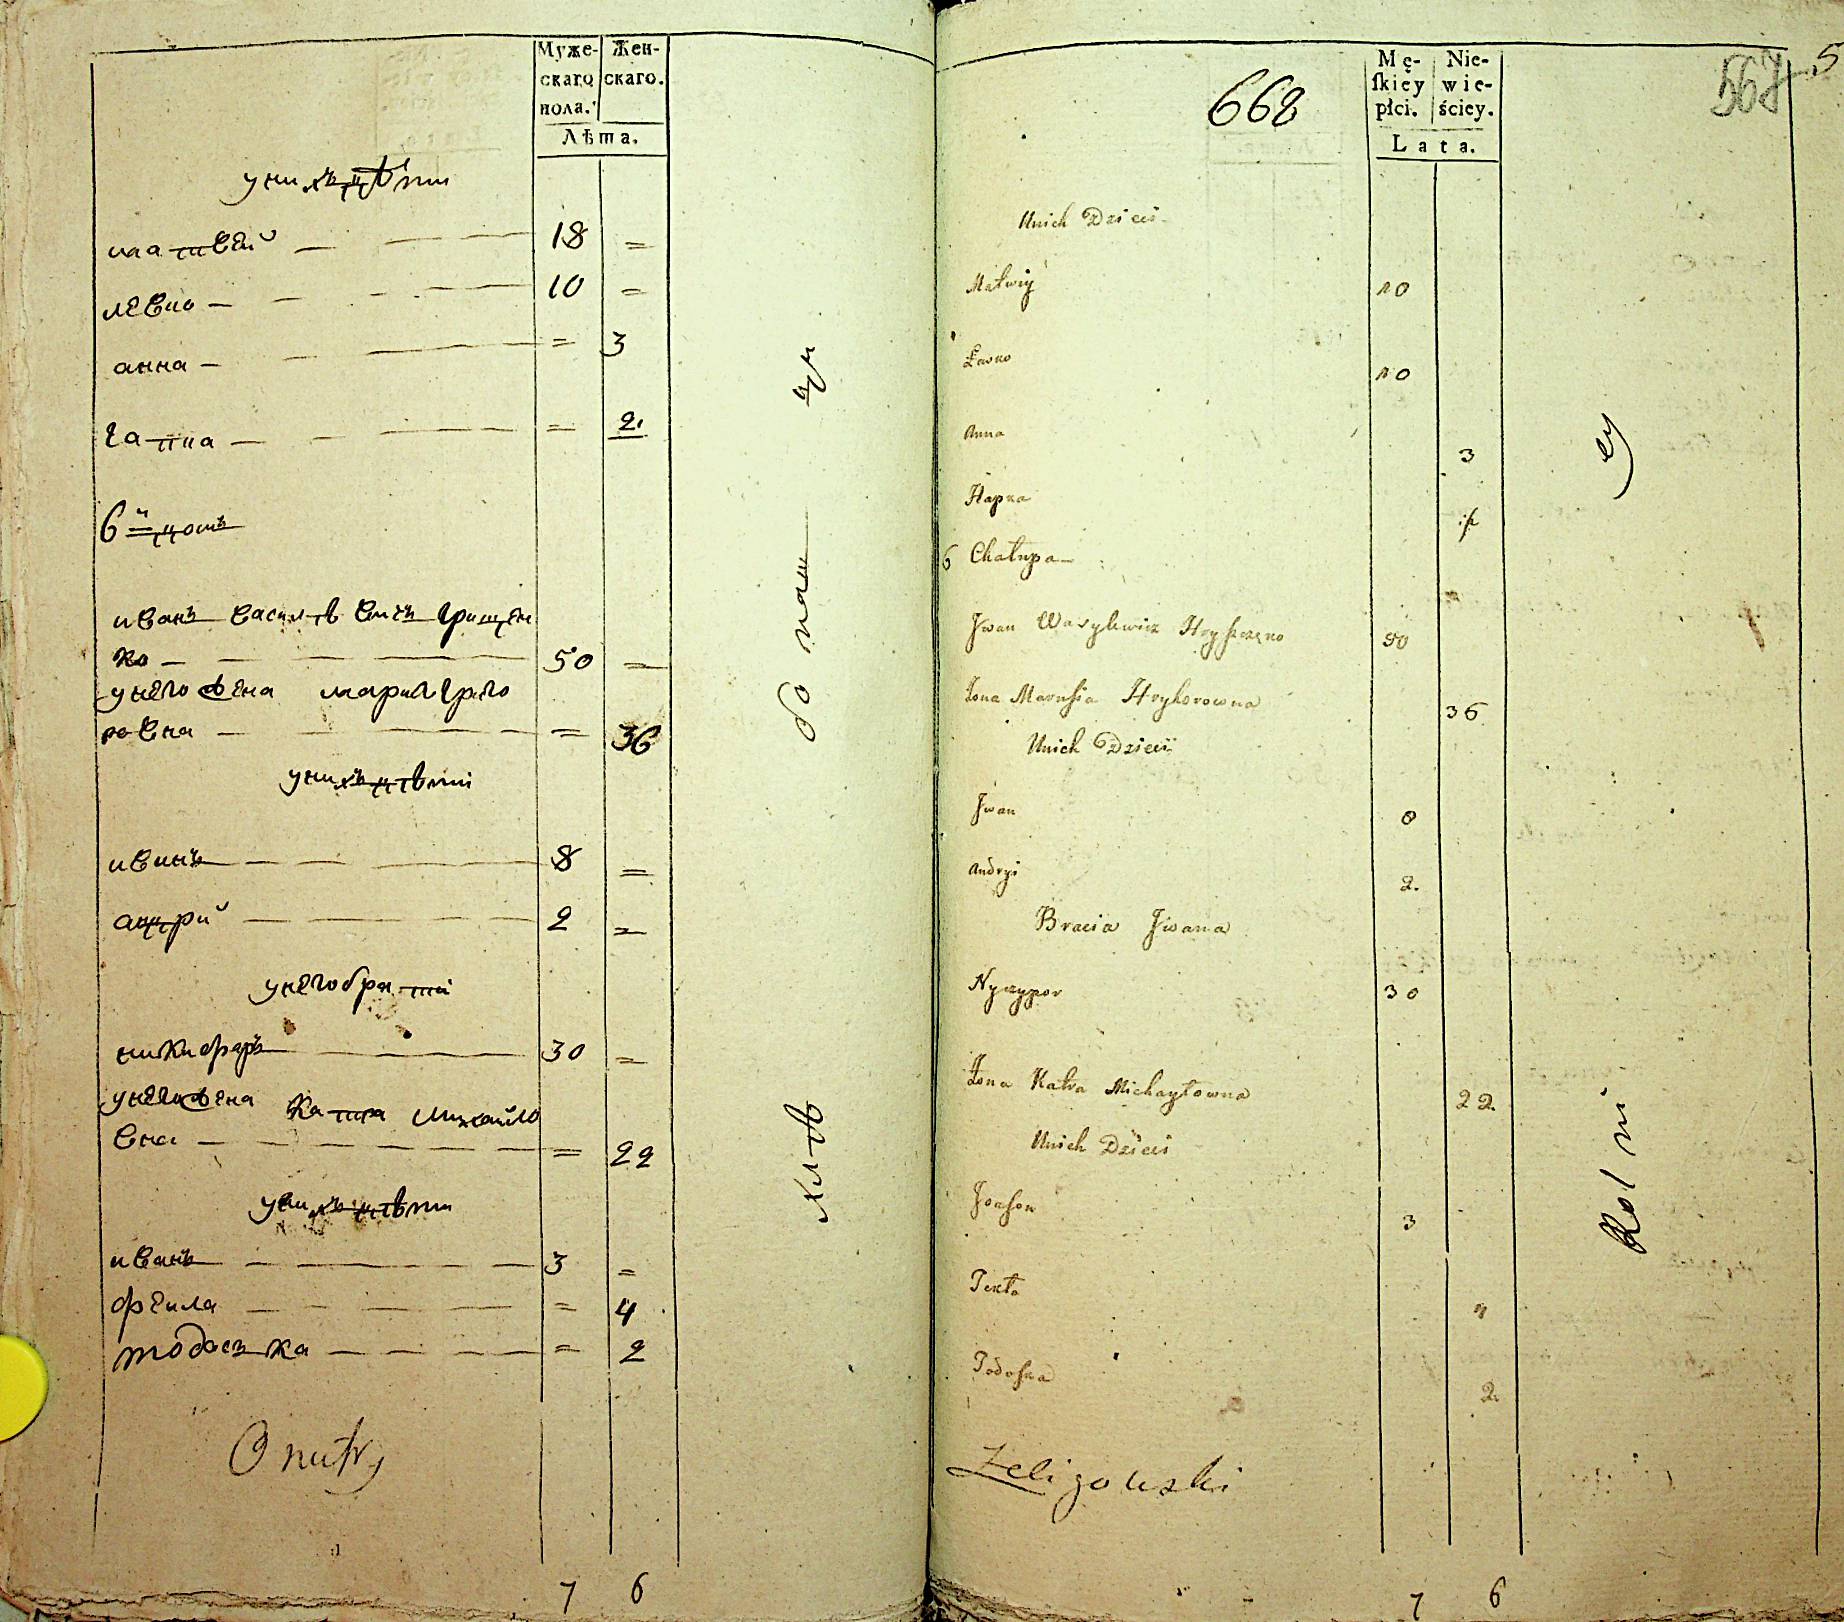 Муже-
скаго
пола.
Жен-
скаго.
Лѣта.
у них дѣти
матвей — 18 =
левко — 10 =
анна — = 3
гапка — = 2.
6й домъ
иванъ василѣвичъ грищен
ко — 50 =
у него жена мария григо
ровна — = 36
у нихъ дѣти
иванъ — 8 =
андрий — 2 =
у него брати
никифоръ — 30 =
у него жена катра михайло
вна — = 22
у нихъ дѣти
иванъ — 3 =
феила — = 4
тодоска — = 2
хлѣ бо паш ци
7 6
668
567
5
Mę-
skiey
płci.
Nie-
wie-
ściey.
Lata.
Unich Dzieci
Matwiy 10
Ławko 10
Anna 3
Hapka
6 Chałupa
Jwan Wasylewicz Hryszczęko 50
Żona Marusia Hryhorowna 36
Unich Dzieci
Jwan 8
Andryi 2.
Bracia Jwana
Nyczypor 30
Żona Katra Michayłowna 22
Unich Dzieci
3
Tekła 4
Todoska 2.
Żeligowski
Rol ni cy
7 6